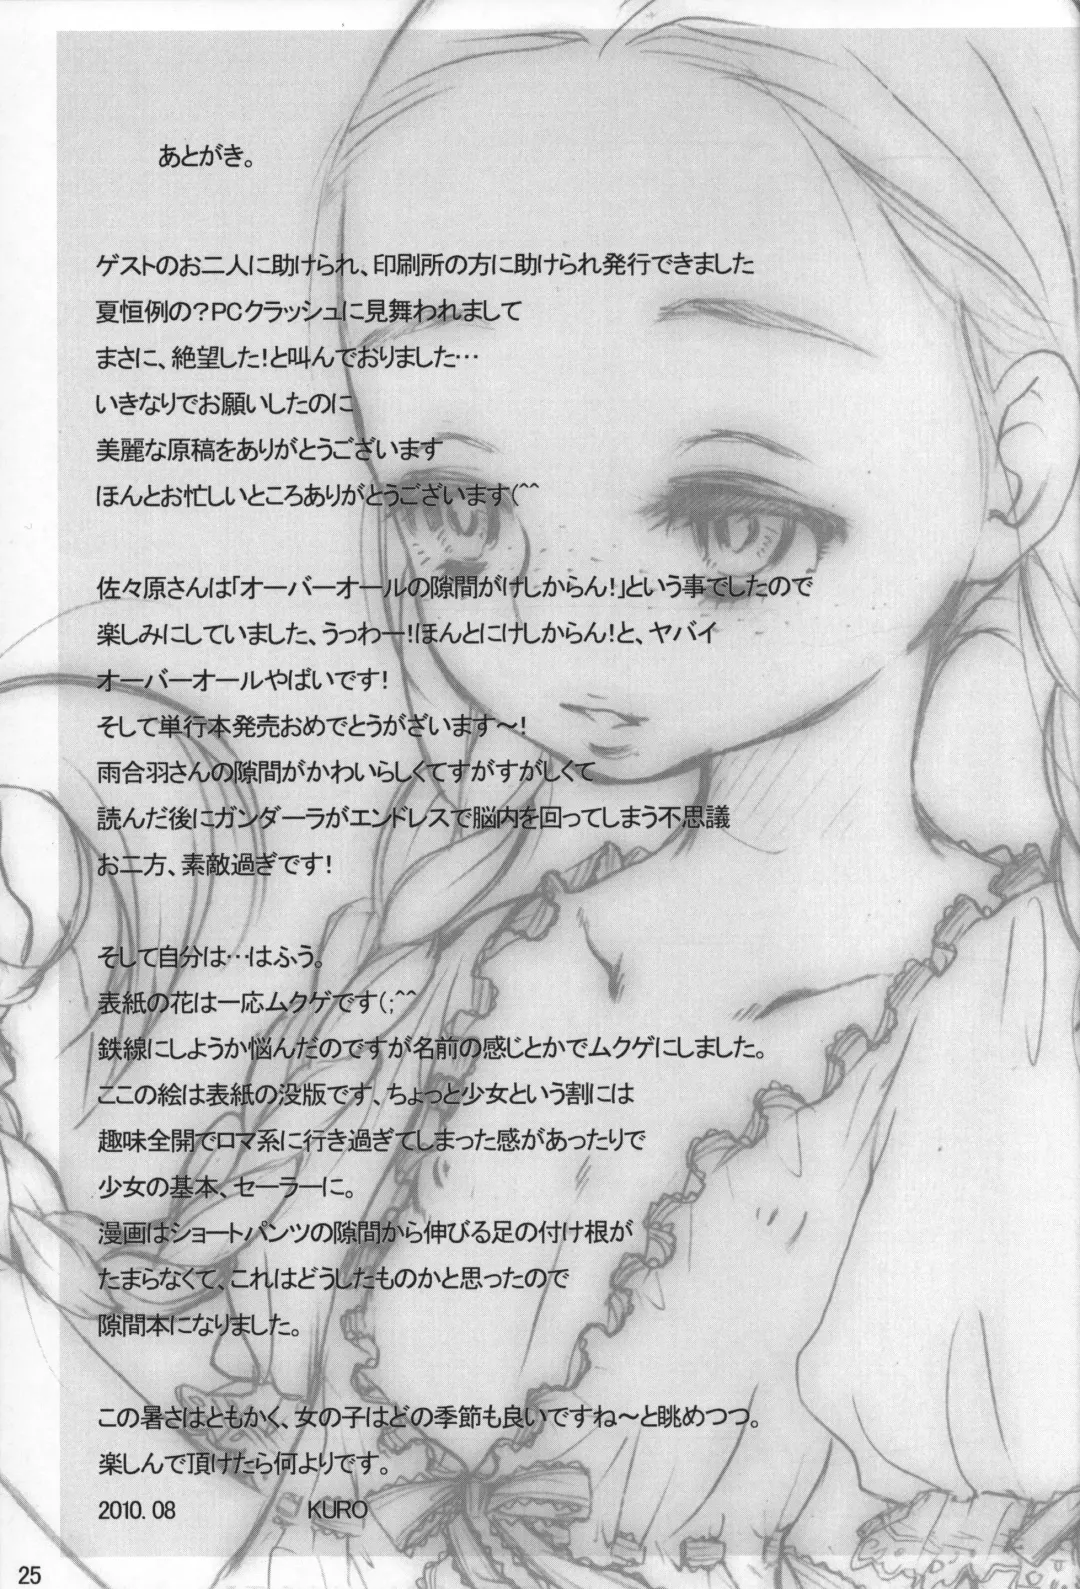 あとがき。
ゲストのお二人に助けられ、印刷所の方に助けられ発行できました
夏恒例の?PCクラッシュに見舞われまして
まさに、絶望した!と叫んでおりました…
いきなりでお願いしたのに
美麗な原稿をありがとうございます
ほんとお忙しいところありがとうございます(^^
佐々原さんは「オーバーオールの隙間がけしからん!」という事でしたので
楽しみにしていました、うっわー!ほんとにけしからん!と、ヤバイ
オーバーオールやばいです!
そして単行本発売おめでとうがざいます〜!
雨合羽さんの隙間がかわいらしくてすがすがしくて
読んだ後にガンダーラがエンドレスで脳内を回ってしまう不思議
お二方、素敵過ぎです!
そして自分は…はふう。
表紙の花は一応ムクゲです(;^^
鉄線にしようか悩んだのですが名前の感じとかでムクゲにしました。
ここの絵は表紙の没版です、ちょっと少女という割には
趣味全開でロマ系に行き過ぎてしまった感があったりで
少女の基本、セーラーに。
漫画はショートパンツの隙間から伸びる足の付け根が
たまらなくて、これはどうしたものかと思ったので
隙間本になりました。
この暑さはともかく、女の子はどの季節も良いですね〜と眺めつつ。
楽しんで頂けたら何よりです。
2010.08 KURO
25